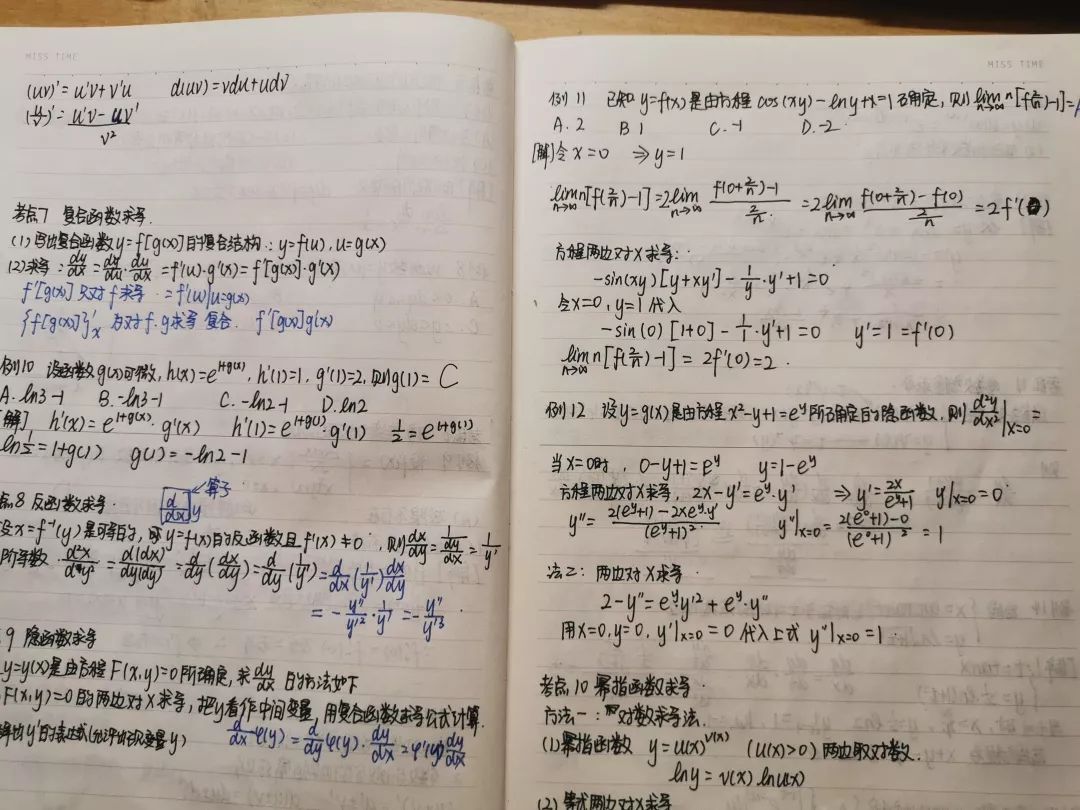 MISS TIME
(uv)' = u'v + v'u    d(uv) = vdu + udv
(u/v)' = (u'v - uv')/v²
考点7 复合函数求导.
(1) 写出复合函数 y=f[g(x)] 的复合结构: y=f(u), u=g(x)
(2) 求导: dy/dx = dy/du · du/dx = f'(u)·g'(x) = f'[g(x)]·g'(x)
f'[g(x)] 只对f求导. = f'(u)|u=g(x)
{f[g(x)]}'ₓ 为对f.g求导 复合. f'[g(x)]g'(x)
例10 设函数g(x)可微, h(x)=e^(1+g(x)), h'(1)=1, g'(1)=2, 则g(1)= C
A. ln3-1    B. -ln3-1    C. -ln2-1    D. ln2
[解] h'(x)=e^(1+g(x))·g'(x)    h'(1)=e^(1+g(1))·g'(1)    1/2=e^(1+g(1))
ln 1/2 = 1+g(1)    g(1)=-ln2-1
点8 反函数求导.    d/dx y ← 算子
设x=f⁻¹(y)是可导的, 即y=f(x)的反函数且f'(x)≠0. 则 dx/dy = 1/(dy/dx) = 1/y'
阶导数. d²x/dy² = d(dx)/dy(dy) = d/dy(dx/dy) = d/dy(1/y') = d/dx(1/y') dx/dy
= -y''/y'² · 1/y' = -y''/y'³
9 隐函数求导
y=y(x)是由方程F(x,y)=0所确定, 求dy/dx 的方法如下
F(x,y)=0的两边对X求导, 把y看作中间变量, 用复合函数求导公式计算.
解出y'的表达式(允许出现变量y)    d/dx φ(y) = d/dy φ(y)·dy/dx = φ'(y) dy/dx
MISS TIME
例11 已知y=f(x)是由方程cos(xy)-lny+x=1确定, 则 lim n→∞ n[f(2/n)-1]=A
A. 2    B 1    C. -1    D. -2.
[解] 令x=0 ⇒ y=1
lim n→∞ n[f(2/n)-1] = 2 lim n→∞ (f(0+2/n)-1)/(2/n) = 2 lim n→∞ (f(0+2/n)-f(0))/(2/n) = 2f'(0)
方程两边对X求导:
-sin(xy)[y+xy'] - 1/y·y'+1=0
令x=0, y=1代入
-sin(0)[1+0] - 1/1·y'+1=0    y'=1=f'(0)
lim n→∞ n[f(2/n)-1] = 2f'(0)=2.
例12 设y=g(x)是由方程x²-y+1=e^y所确定的隐函数. 则 d²y/dx²|x=0 =
当X=0时, 0-y+1=e^y    y=1-e^y
方程两边对X求导, 2x-y'=e^y·y'    ⇒ y'=2x/(e^y+1)    y'|x=0=0
y''=(2(e^y+1)-2xe^y·y')/(e^y+1)²    y''|x=0=(2(e⁰+1)-0)/(e⁰+1)²=1
法二: 两边对X求导
2-y''=e^y·y'²+e^y·y''
用x=0, y=0, y'|x=0=0代入上式 y''|x=0=1.
考点10 幂指函数求导.
方法一: 对数求导法.
(1) 幂指函数 y=u(x)^v(x) (u(x)>0) 两边取对数.
lny=v(x)lnu(x)
(2) 等式两边对X求导